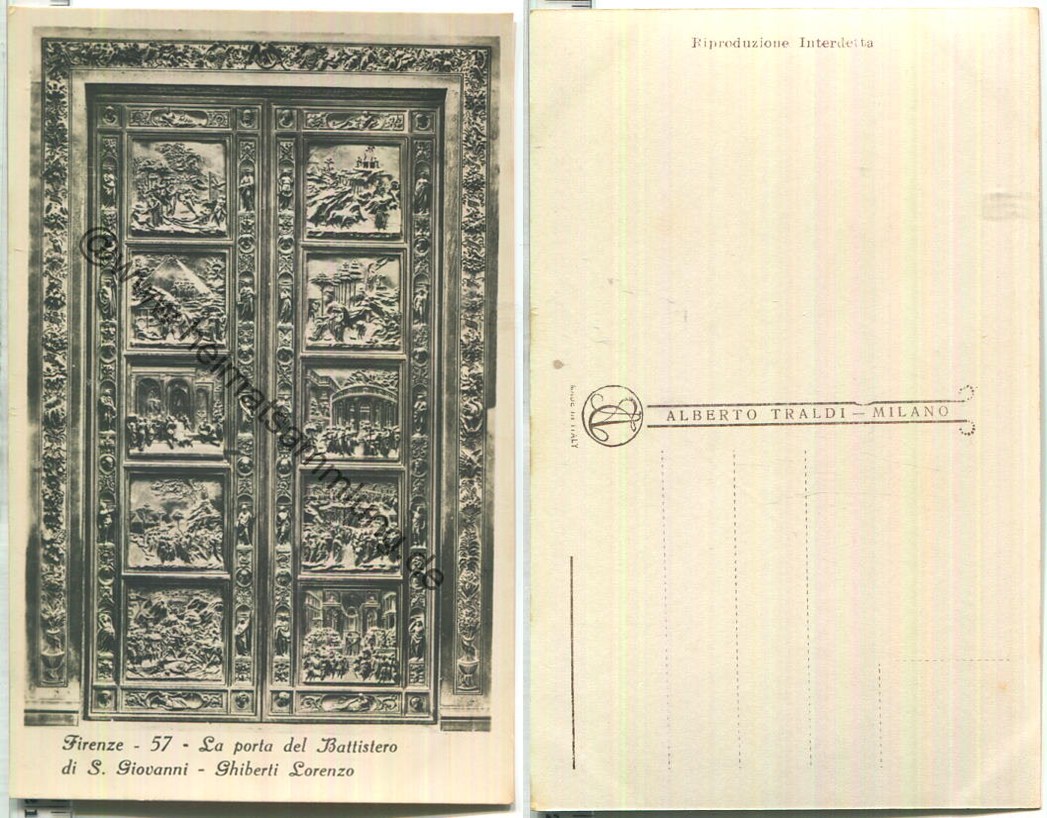 Firenze - 57 - La porta del Battistero
di S. Giovanni - Ghiberti Lorenzo
©www.heimatsammlung.de
Riproduzione Interdetta
MADE IN ITALY
ALBERTO TRALDI — MILANO